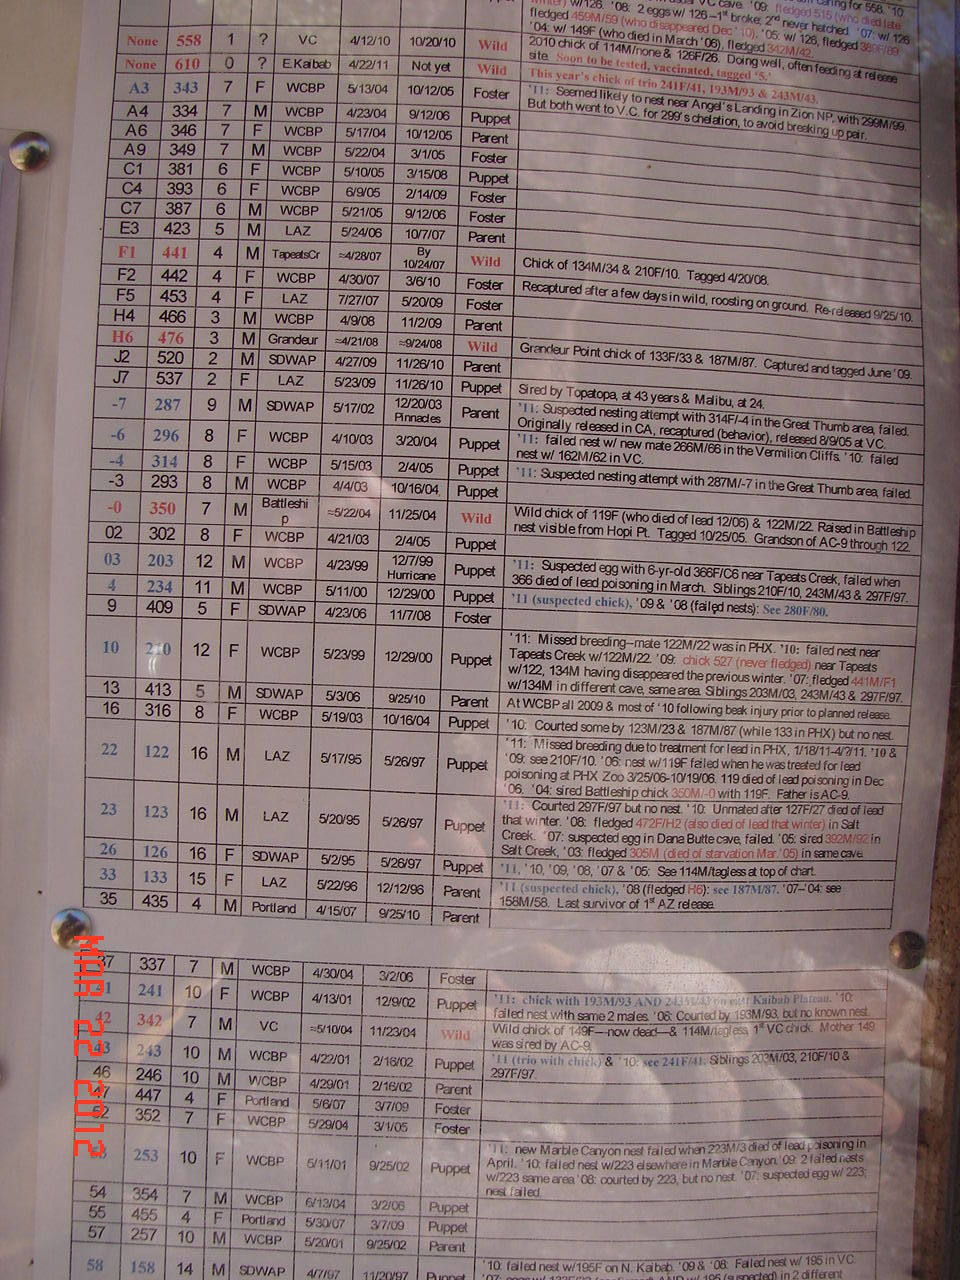 winter) w/126. '08: 2 eggs w/ 126–1st broke; 2nd never hatched. '07: w/ 126
fledged 459M/59 (who disappeared Dec '10). '05: w/ 126, fledged
'04: w/ 149F (who died in March '06), fledged 342M/42.
None 558 1 ? VC 4/12/10 10/20/10 Wild 2010 chick of 114M/none & 126F/26. Doing well, often feeding at release
site. Soon to be tested, vaccinated, tagged '5.'
None 610 0 ? E.Kaibab 4/22/11 Not yet Wild This year's chick of trio 241F/41, 193M/93 & 243M/43.
A3 343 7 F WCBP 5/13/04 10/12/05 Foster '11: Seemed likely to nest near Angel's Landing in Zion NP, with 299M/99.
But both went to V.C. for 299's chelation, to avoid breaking up pair.
A4 334 7 M WCBP 4/23/04 9/12/06 Puppet
A6 346 7 F WCBP 5/17/04 10/12/05 Parent
A9 349 7 M WCBP 5/22/04 3/1/05 Foster
C1 381 6 F WCBP 5/10/05 3/15/08 Puppet
C4 393 6 F WCBP 6/9/05 2/14/09 Foster
C7 387 6 M WCBP 5/21/05 9/12/06 Foster
E3 423 5 M LAZ 5/24/06 10/7/07 Parent
F1 441 4 M TapeatsCr ≈4/28/07 By
10/24/07 Wild Chick of 134M/34 & 210F/10. Tagged 4/20/08.
F2 442 4 F WCBP 4/30/07 3/6/10 Foster Recaptured after a few days in wild, roosting on ground. Re-released 9/25/10.
F5 453 4 F LAZ 7/27/07 5/20/09 Foster
H4 466 3 M WCBP 4/9/08 11/2/09 Parent
H6 476 3 M Grandeur ≈4/21/08 ≈9/24/08 Wild Grandeur Point chick of 133F/33 & 187M/87. Captured and tagged June '09.
J2 520 2 M SDWAP 4/27/09 11/26/10 Parent
J7 537 2 F LAZ 5/23/09 11/26/10 Puppet Sired by Topatopa, at 43 years & Malibu, at 24.
-7 287 9 M SDWAP 5/17/02 12/20/03
Pinnacles Parent '11: Suspected nesting attempt with 314F/-4 in the Great Thumb area, failed.
Originally released in CA, recaptured (behavior), released 8/9/05 at VC.
-6 296 8 F WCBP 4/10/03 3/20/04 Puppet '11: failed nest w/ new mate 266M/66 in the Vermilion Cliffs. '10: failed
nest w/ 162M/62 in VC.
-4 314 8 F WCBP 5/15/03 2/4/05 Puppet '11: Suspected nesting attempt with 287M/-7 in the Great Thumb area, failed.
-3 293 8 M WCBP 4/4/03 10/16/04 Puppet
-0 350 7 M Battleshi
p ≈5/22/04 11/25/04 Wild Wild chick of 119F (who died of lead 12/06) & 122M/22. Raised in Battleship
nest visible from Hopi Pt. Tagged 10/25/05. Grandson of AC-9 through 122.
02 302 8 F WCBP 4/21/03 2/4/05 Puppet
03 203 12 M WCBP 4/23/99 12/7/99
Hurricane Puppet '11: Suspected egg with 6-yr-old 366F/C6 near Tapeats Creek, failed when
366 died of lead poisoning in March. Siblings 210F/10, 243M/43 & 297F/97.
4 234 11 M WCBP 5/11/00 12/29/00 Puppet '11 (suspected chick), '09 & '08 (failed nests): See 280F/80.
9 409 5 F SDWAP 4/23/06 11/7/08 Foster
10 210 12 F WCBP 5/23/99 12/29/00 Puppet '11: Missed breeding–mate 122M/22 was in PHX. '10: failed nest near
Tapeats Creek w/122M/22. '09: chick 527 (never fledged) near Tapeats
w/122, 134M having disappeared the previous winter. '07: fledged 441M/F1
w/134M in different cave, same area. Siblings 203M/03, 243M/43 & 297F/97.
13 413 5 M SDWAP 5/3/06 9/25/10 Parent At WCBP all 2009 & most of '10 following beak injury prior to planned release.
16 316 8 F WCBP 5/19/03 10/16/04 Puppet '10: Courted some by 123M/23 & 187M/87 (while 133 in PHX) but no nest.
22 122 16 M LAZ 5/17/95 5/26/97 Puppet '11: Missed breeding due to treatment for lead in PHX, 1/18/11-4/?/11. '10 &
'09: see 210F/10. '06: nest w/119F failed when he was treated for lead
poisoning at PHX Zoo 3/25/06-10/19/06. 119 died of lead poisoning in Dec
'06. '04: sired Battleship chick 350M/-0 with 119F. Father is AC-9.
23 123 16 M LAZ 5/20/95 5/26/97 Puppet '11: Courted 297F/97 but no nest. '10: Unmated after 127F/27 died of lead
that winter. '08: fledged 472F/H2 (also died of lead that winter) in Salt
Creek. '07: suspected egg in Dana Butte cave, failed. '05: sired 392M/92 in
Salt Creek, '03: fledged 305M (died of starvation Mar. '05) in same cave.
26 126 16 F SDWAP 5/2/95 5/26/97 Puppet '11, '10, '09, '08, '07 & '05: See 114M/tagless at top of chart.
33 133 15 F LAZ 5/22/96 12/12/96 Parent '11 (suspected chick), '08 (fledged H6): see 187M/87. '07–'04: see
158M/58. Last survivor of 1st AZ release.
35 435 4 M Portland 4/15/07 9/25/10 Parent
37 337 7 M WCBP 4/30/04 3/2/06 Foster
41 241 10 F WCBP 4/13/01 12/9/02 Puppet '11: chick with 193M/93 AND 243M/43 on east Kaibab Plateau. '10:
failed nest with same 2 males. '08: Courted by 193M/93, but no known nest.
42 342 7 M VC ≈5/10/04 11/23/04 Wild Wild chick of 149F—now dead—& 114M/tagless, 1st VC chick. Mother 149
was sired by AC-9.
43 243 10 M WCBP 4/22/01 2/16/02 Puppet '11 (trio with chick) & '10: see 241F/41. Siblings 203M/03, 210F/10 &
297F/97.
46 246 10 M WCBP 4/29/01 2/16/02 Parent
47 447 4 F Portland 5/6/07 3/7/09 Foster
52 352 7 F WCBP 5/29/04 3/1/05 Foster
53 253 10 F WCBP 5/11/01 9/25/02 Puppet '11: new Marble Canyon nest failed when 223M/3 died of lead poisoning in
April. '10: failed nest w/223 elsewhere in Marble Canyon. '09: 2 failed nests
w/223 same area. '08: courted by 223, but no nest. '07: suspected egg w/ 223;
nest failed.
54 354 7 M WCBP 6/13/04 3/2/06 Puppet
55 455 4 F Portland 5/30/07 3/7/09 Puppet
57 257 10 M WCBP 5/20/01 9/25/02 Parent
58 158 14 M SDWAP 4/7/97 11/20/97 Puppet '10: failed nest w/195F on N. Kaibab. '09 & '08: Failed nest w/ 195 in VC.
MAR 22 2012